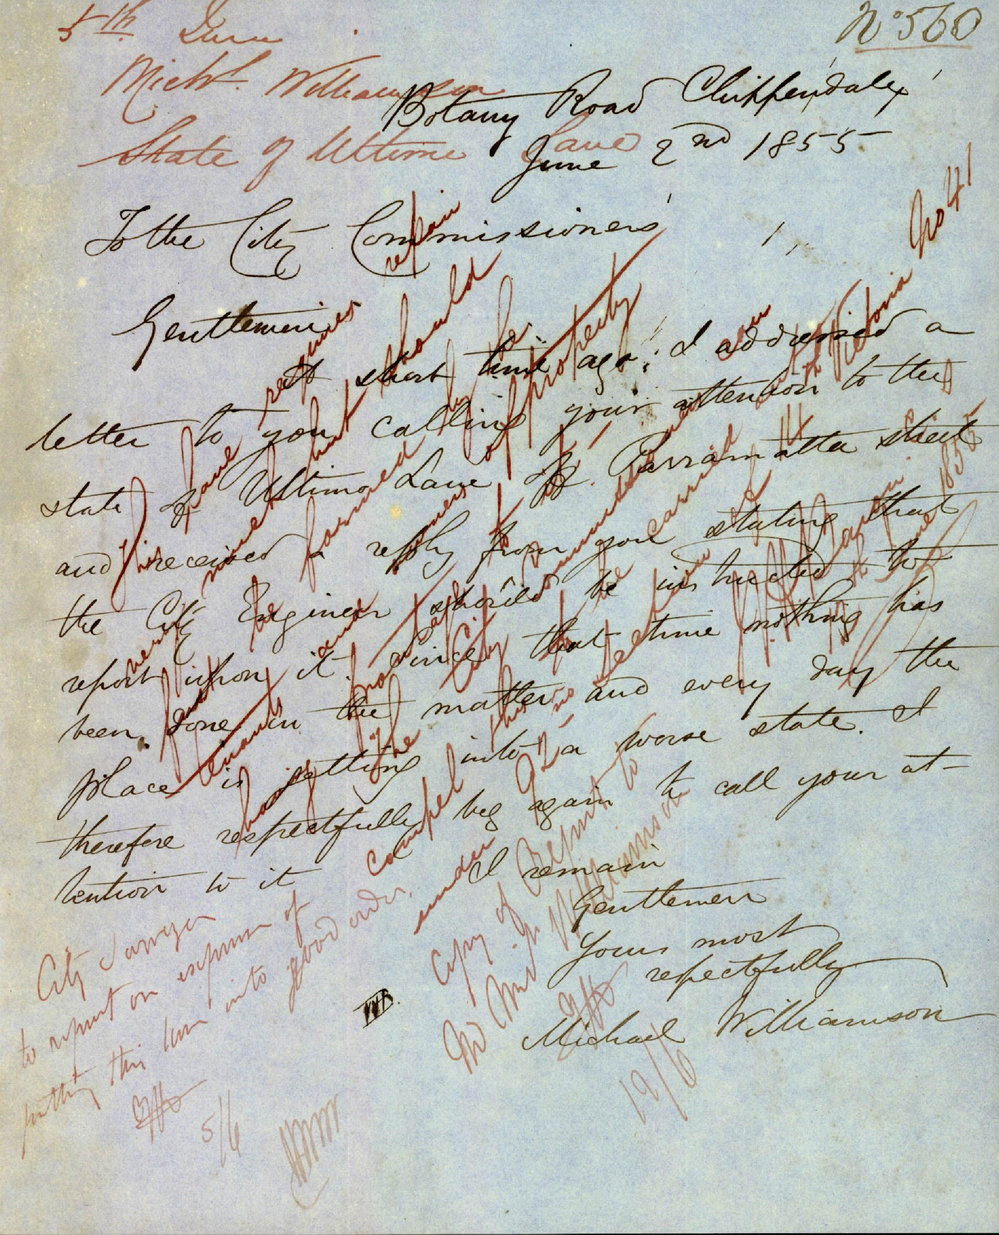 5th June
Michl. Williamson
State of Ultimo Lane
No 560
Botany Road Chippendale
June 2nd 1855
To the City Commissioners
Gentlemen
A short time ago I addressed a
letter to you calling your attention to the
state of Ultimo Lane off Parramatta street
and received a reply from you stating that
the City Engineer should be instructed to
report upon it. Since that time nothing has
been done in the matter and every day the
place is getting into a worse state. I
therefore respectfully beg again to call your at-
tention to it
I remain
Gentlemen
Yours most
respectfully
Michael Williamson
City Surveyor
to report on expense of
putting this lane into good order.
5/6
This lane requires repair
very much but should
first be formed by the
owners of property
the City Commissioners can
compel this to be carried out
under 92 no section of the Victoria No 41
June 1855
Copy of Report to
Mr Michl. Williamson
19/6